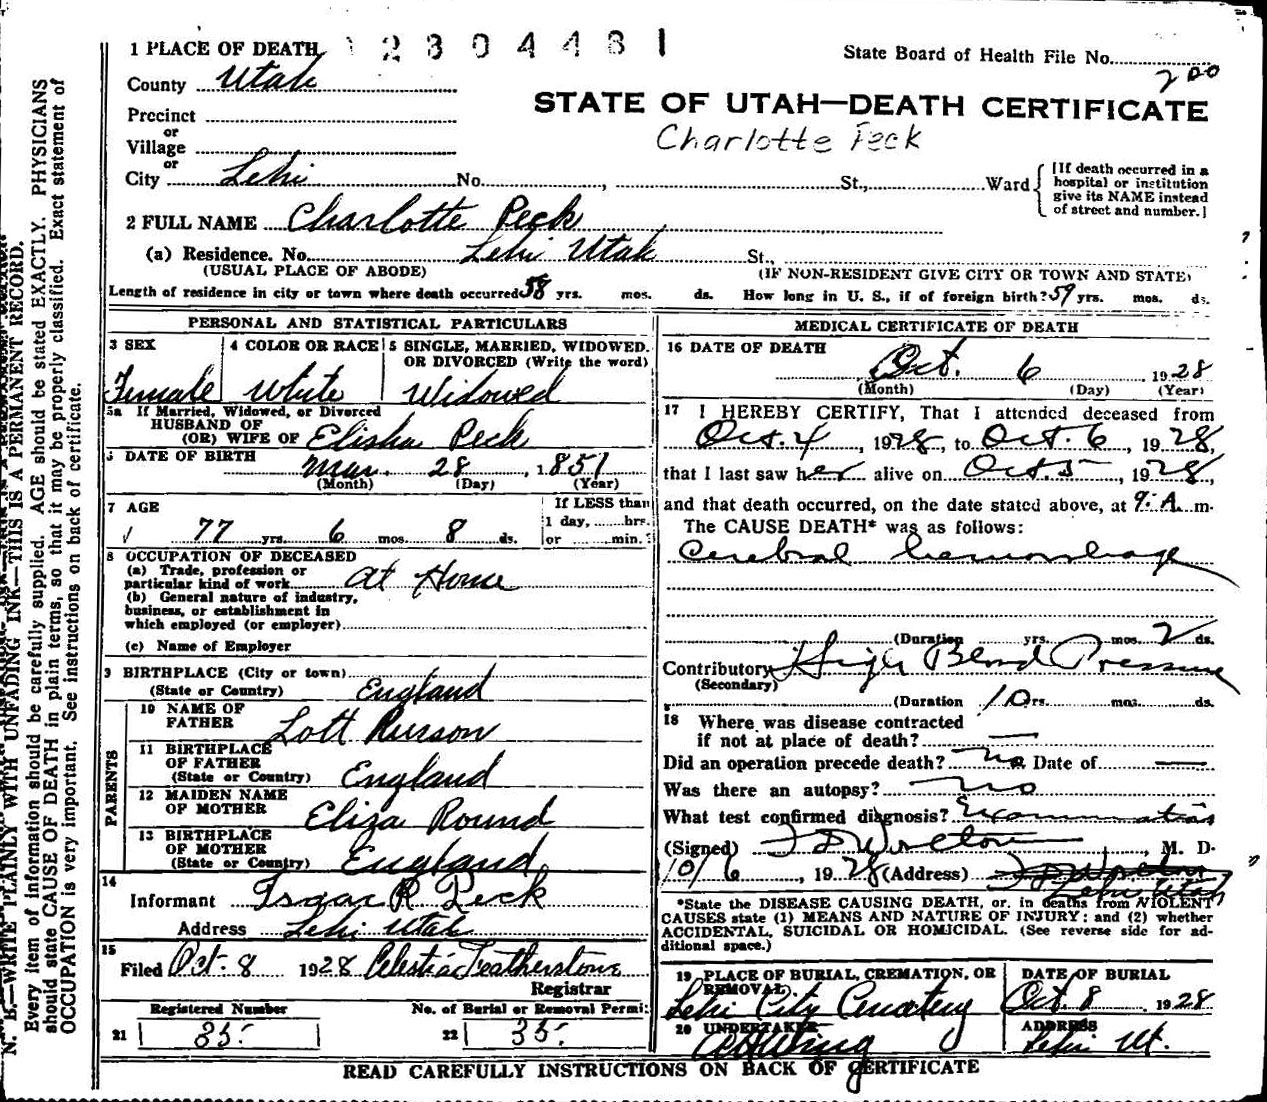 1 PLACE OF DEATH 2 3 0 4 4 8 1
State Board of Health File No.
200
County Utah
STATE OF UTAH—DEATH CERTIFICATE
Precinct
Charlotte Peck
or
Village
or
City Lehi No. , St., Ward
[If death occurred in a
hospital or institution
give its NAME instead
of street and number.]
2 FULL NAME Charlotte Peck
(a) Residence. No. Lehi Utah St.,
(USUAL PLACE OF ABODE) (IF NON-RESIDENT GIVE CITY OR TOWN AND STATE)
Length of residence in city or town where death occurred 58 yrs. mos. ds. How long in U. S., if of foreign birth? 59 yrs. mos. ds.
PERSONAL AND STATISTICAL PARTICULARS
3 SEX 4 COLOR OR RACE 5 SINGLE, MARRIED, WIDOWED.
OR DIVORCED (Write the word)
Female White Widowed
5a If Married, Widowed, or Divorced
HUSBAND OF
(OR) WIFE OF Elisha Peck
DATE OF BIRTH
Mar. 28, 1851
(Month) (Day) (Year)
7 AGE If LESS than
1 day, hrs.
77 yrs. 6 mos. 8 ds. or min.
8 OCCUPATION OF DECEASED
(a) Trade, profession or
particular kind of work At Home
(b) General nature of industry,
business, or establishment in
which employed (or employer)
(c) Name of Employer
9 BIRTHPLACE (City or town)
(State or Country) England
PARENTS
10 NAME OF
FATHER Lott
11 BIRTHPLACE
OF FATHER
(State or Country) England
12 MAIDEN NAME
OF MOTHER Eliza Round
13 BIRTHPLACE
OF MOTHER
(State or Country) England
14
Informant R. Peck
Address Lehi Utah
15
Filed Oct. 8 1928 Celestia Featherstone
Registrar
Registered Number No. of Burial or Removal Permit
21 35. 22 35.
MEDICAL CERTIFICATE OF DEATH
16 DATE OF DEATH
Oct. 6, 1928
(Month) (Day) (Year)
17 I HEREBY CERTIFY, That I attended deceased from
Oct. 4, 1928, to Oct. 6, 1928,
that I last saw her alive on Oct 5, 1928,
and that death occurred, on the date stated above, at 9. A. m.
The CAUSE DEATH* was as follows:
Cerebral hemorrhage
(Duration yrs. mos. 2 ds.
Contributory High Blood Pressure
(Secondary)
(Duration 10 rs. mos. ds.
18 Where was disease contracted
if not at place of death? —
Did an operation precede death? no Date of —
Was there an autopsy? no
What test confirmed diagnosis? Examination
(Signed) , M. D.
10/6, 1928 (Address) Lehi Utah
*State the DISEASE CAUSING DEATH, or, in deaths from VIOLENT
CAUSES state (1) MEANS AND NATURE OF INJURY; and (2) whether
ACCIDENTAL, SUICIDAL OR HOMICIDAL. (See reverse side for ad-
ditional space.)
19 PLACE OF BURIAL, CREMATION, OR
REMOVAL)
Lehi City Cemetery
DATE OF BURIAL
Oct. 8 1928
20 UNDERTAKER
ADDRESS
Lehi Ut.
READ CAREFULLY INSTRUCTIONS ON BACK OF CERTIFICATE
N. B.—WRITE PLAINLY WITH UNFADING INK—THIS IS A PERMANENT RECORD.
Every item of information should be carefully supplied. AGE should be stated EXACTLY. PHYSICIANS
should state CAUSE OF DEATH in plain terms, so that it may be properly classified. Exact statement of
OCCUPATION is very important. See instructions on back of certificate.